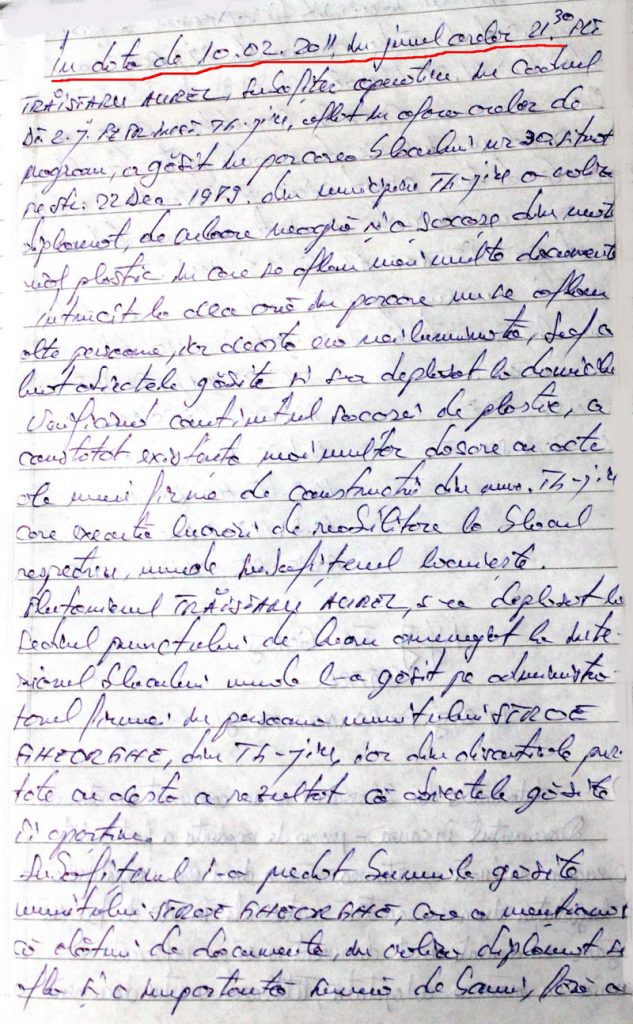 În data de 10.02.2011, în jurul orelor 21.30 Plt
TRĂISTARU AUREL, subofițer operativ în cadrul
aflat în afara orelor de
program, a găsit în parcarea blocului nr situat
pe str. 22 Dec. 1989. din municipiu Tg-jiu o valiza
diplomat, de culoare neagră și o sacoșe din mate
rial plastic în care se aflau mai multe documente
întrucît la acea oră în parcare nu se aflau
alte persoane, iar aceasta era neiluminată, a
luat obiectele găsite și s-a deplasat la domiciliu
Verificând conținutul sacoșei de plastic, a
constatat existența mai multor dosare cu acte
ale unei firme de construcții din mun. Tg-jiu
care execută lucrări de reabilitare la blocul
respectiv, unde subofițerul locuiește.
Plutonierul TRĂISTARU AUREL, s-a deplasat la
sediul punctului de lucru amenajat la inte-
riorul blocului unde l-a găsit pe administra-
torul firmei în persoana numitului STROE
GHEORGHE, din Tg-jiu, iar din discuțiile pur-
tate cu acesta a rezultat că obiectele găsite
îi aparțin.
Subofițerul i-a predat bunurile găsite
numitului STROE GHEORGHE, care a menționat
că alături de documente, în valiza diplomat se
afla și o importantă sumă de bani, fără a